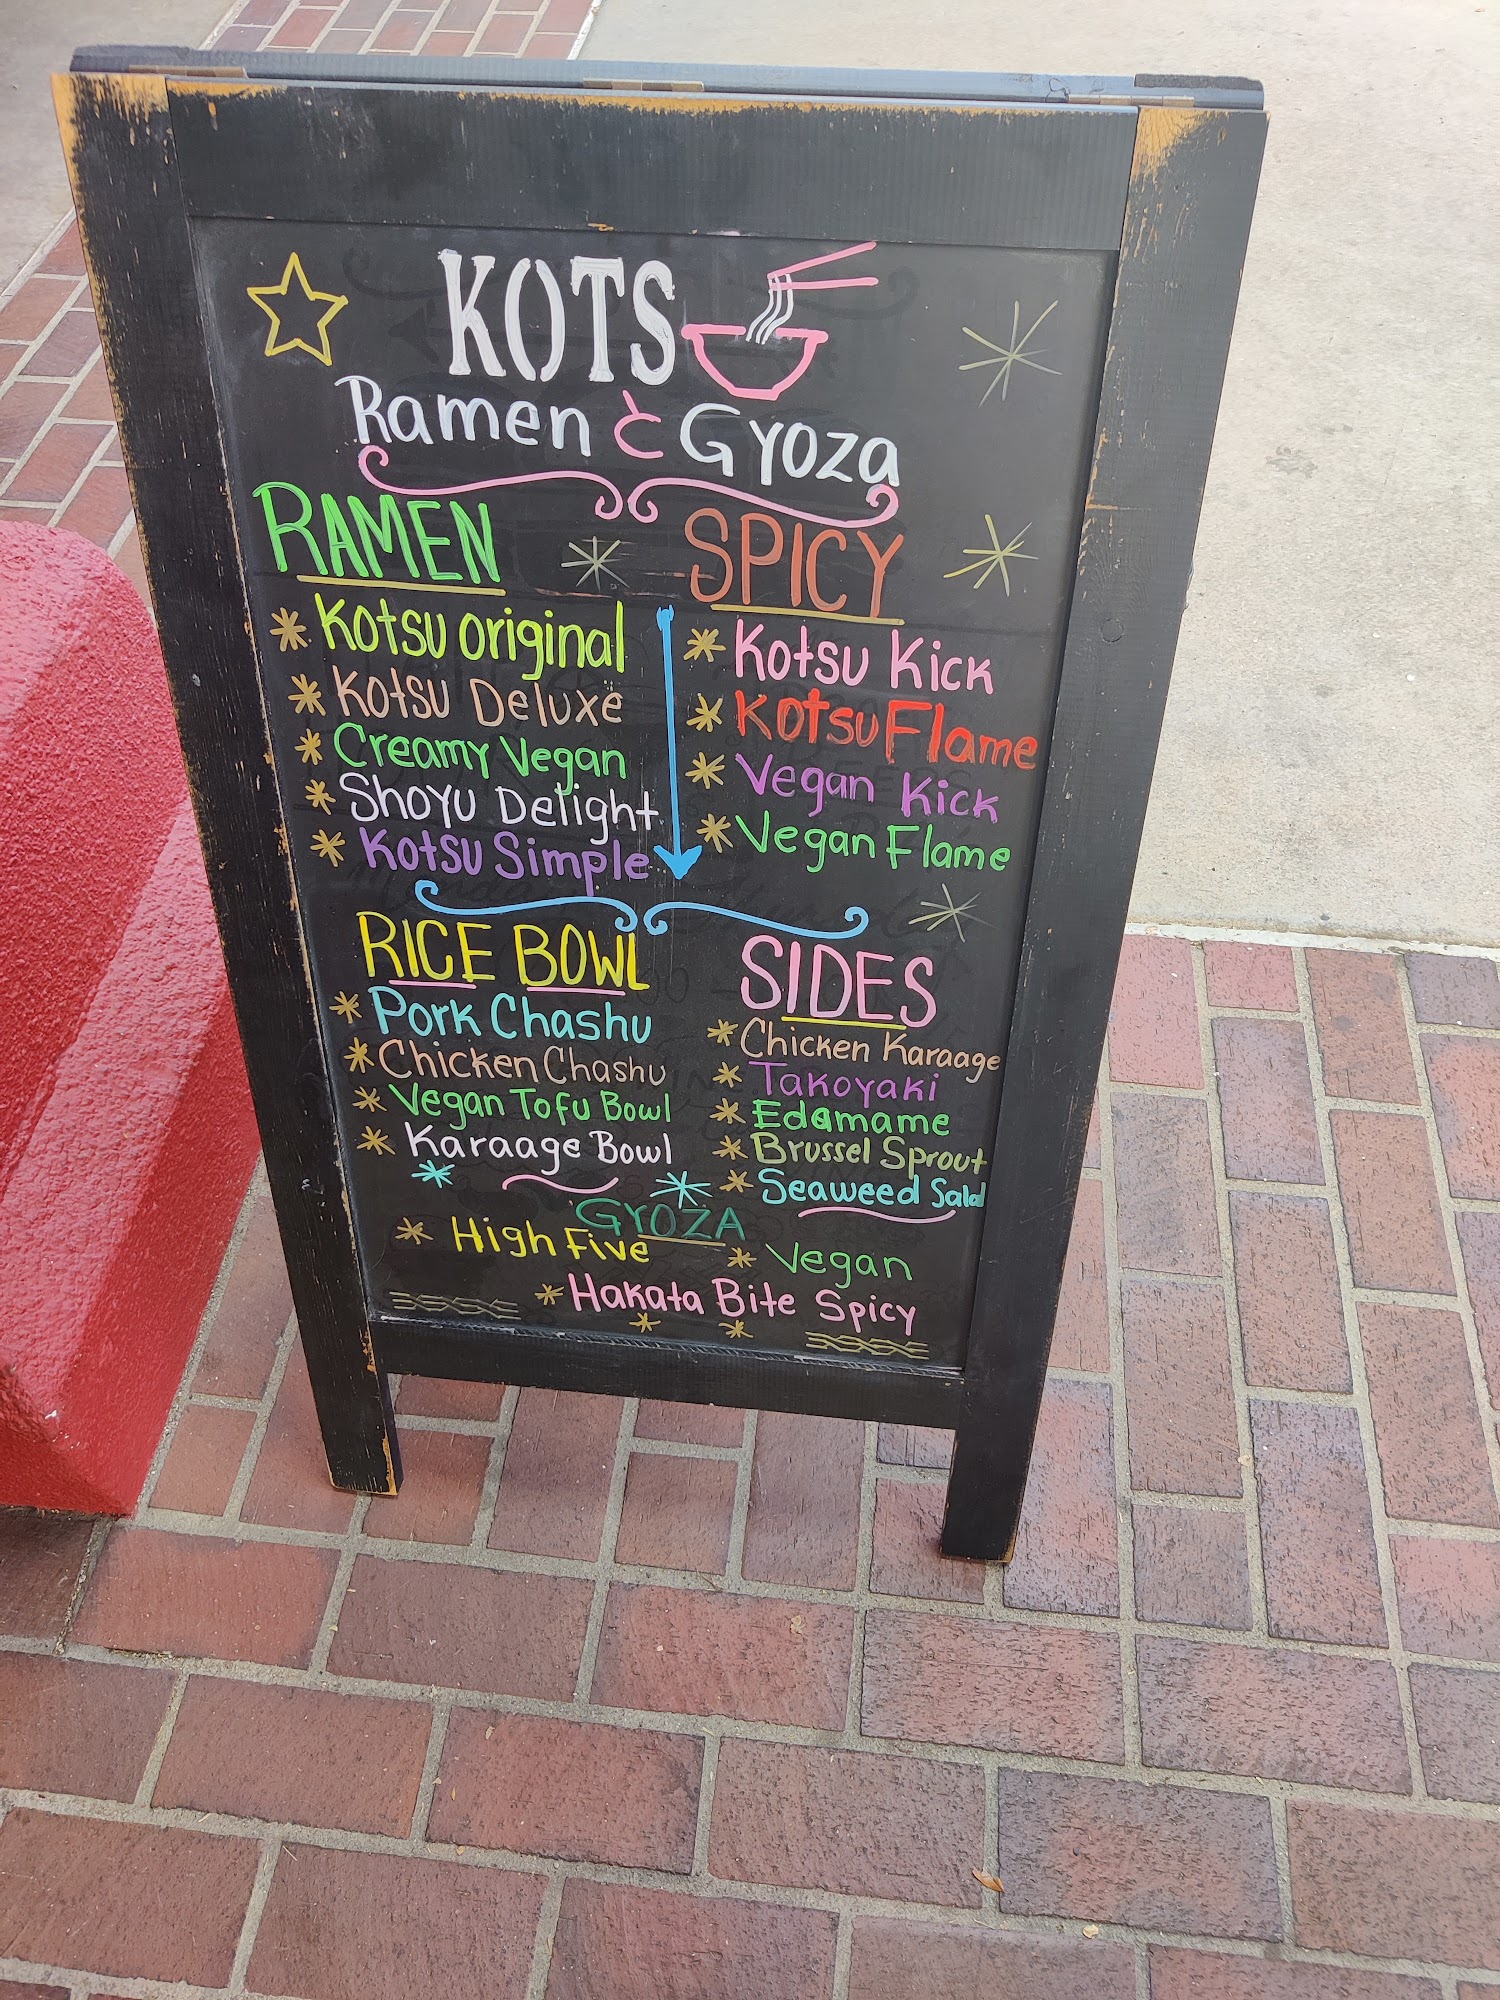 KOTS
Ramen と Gyoza
RAMEN
Kotsu original
Kotsu Deluxe
Creamy Vegan
Shoyu Delight
Kotsu Simple
SPICY
Kotsu Kick
Kotsu Flame
Vegan Kick
Vegan Flame
RICE BOWL
Pork Chashu
Chicken Chashu
Vegan Tofu Bowl
Karaage Bowl
SIDES
Chicken Karaage
Takoyaki
Edamame
Brussel Sprout
Seaweed Salad
GYOZA
High Five
Vegan
Hakata Bite Spicy